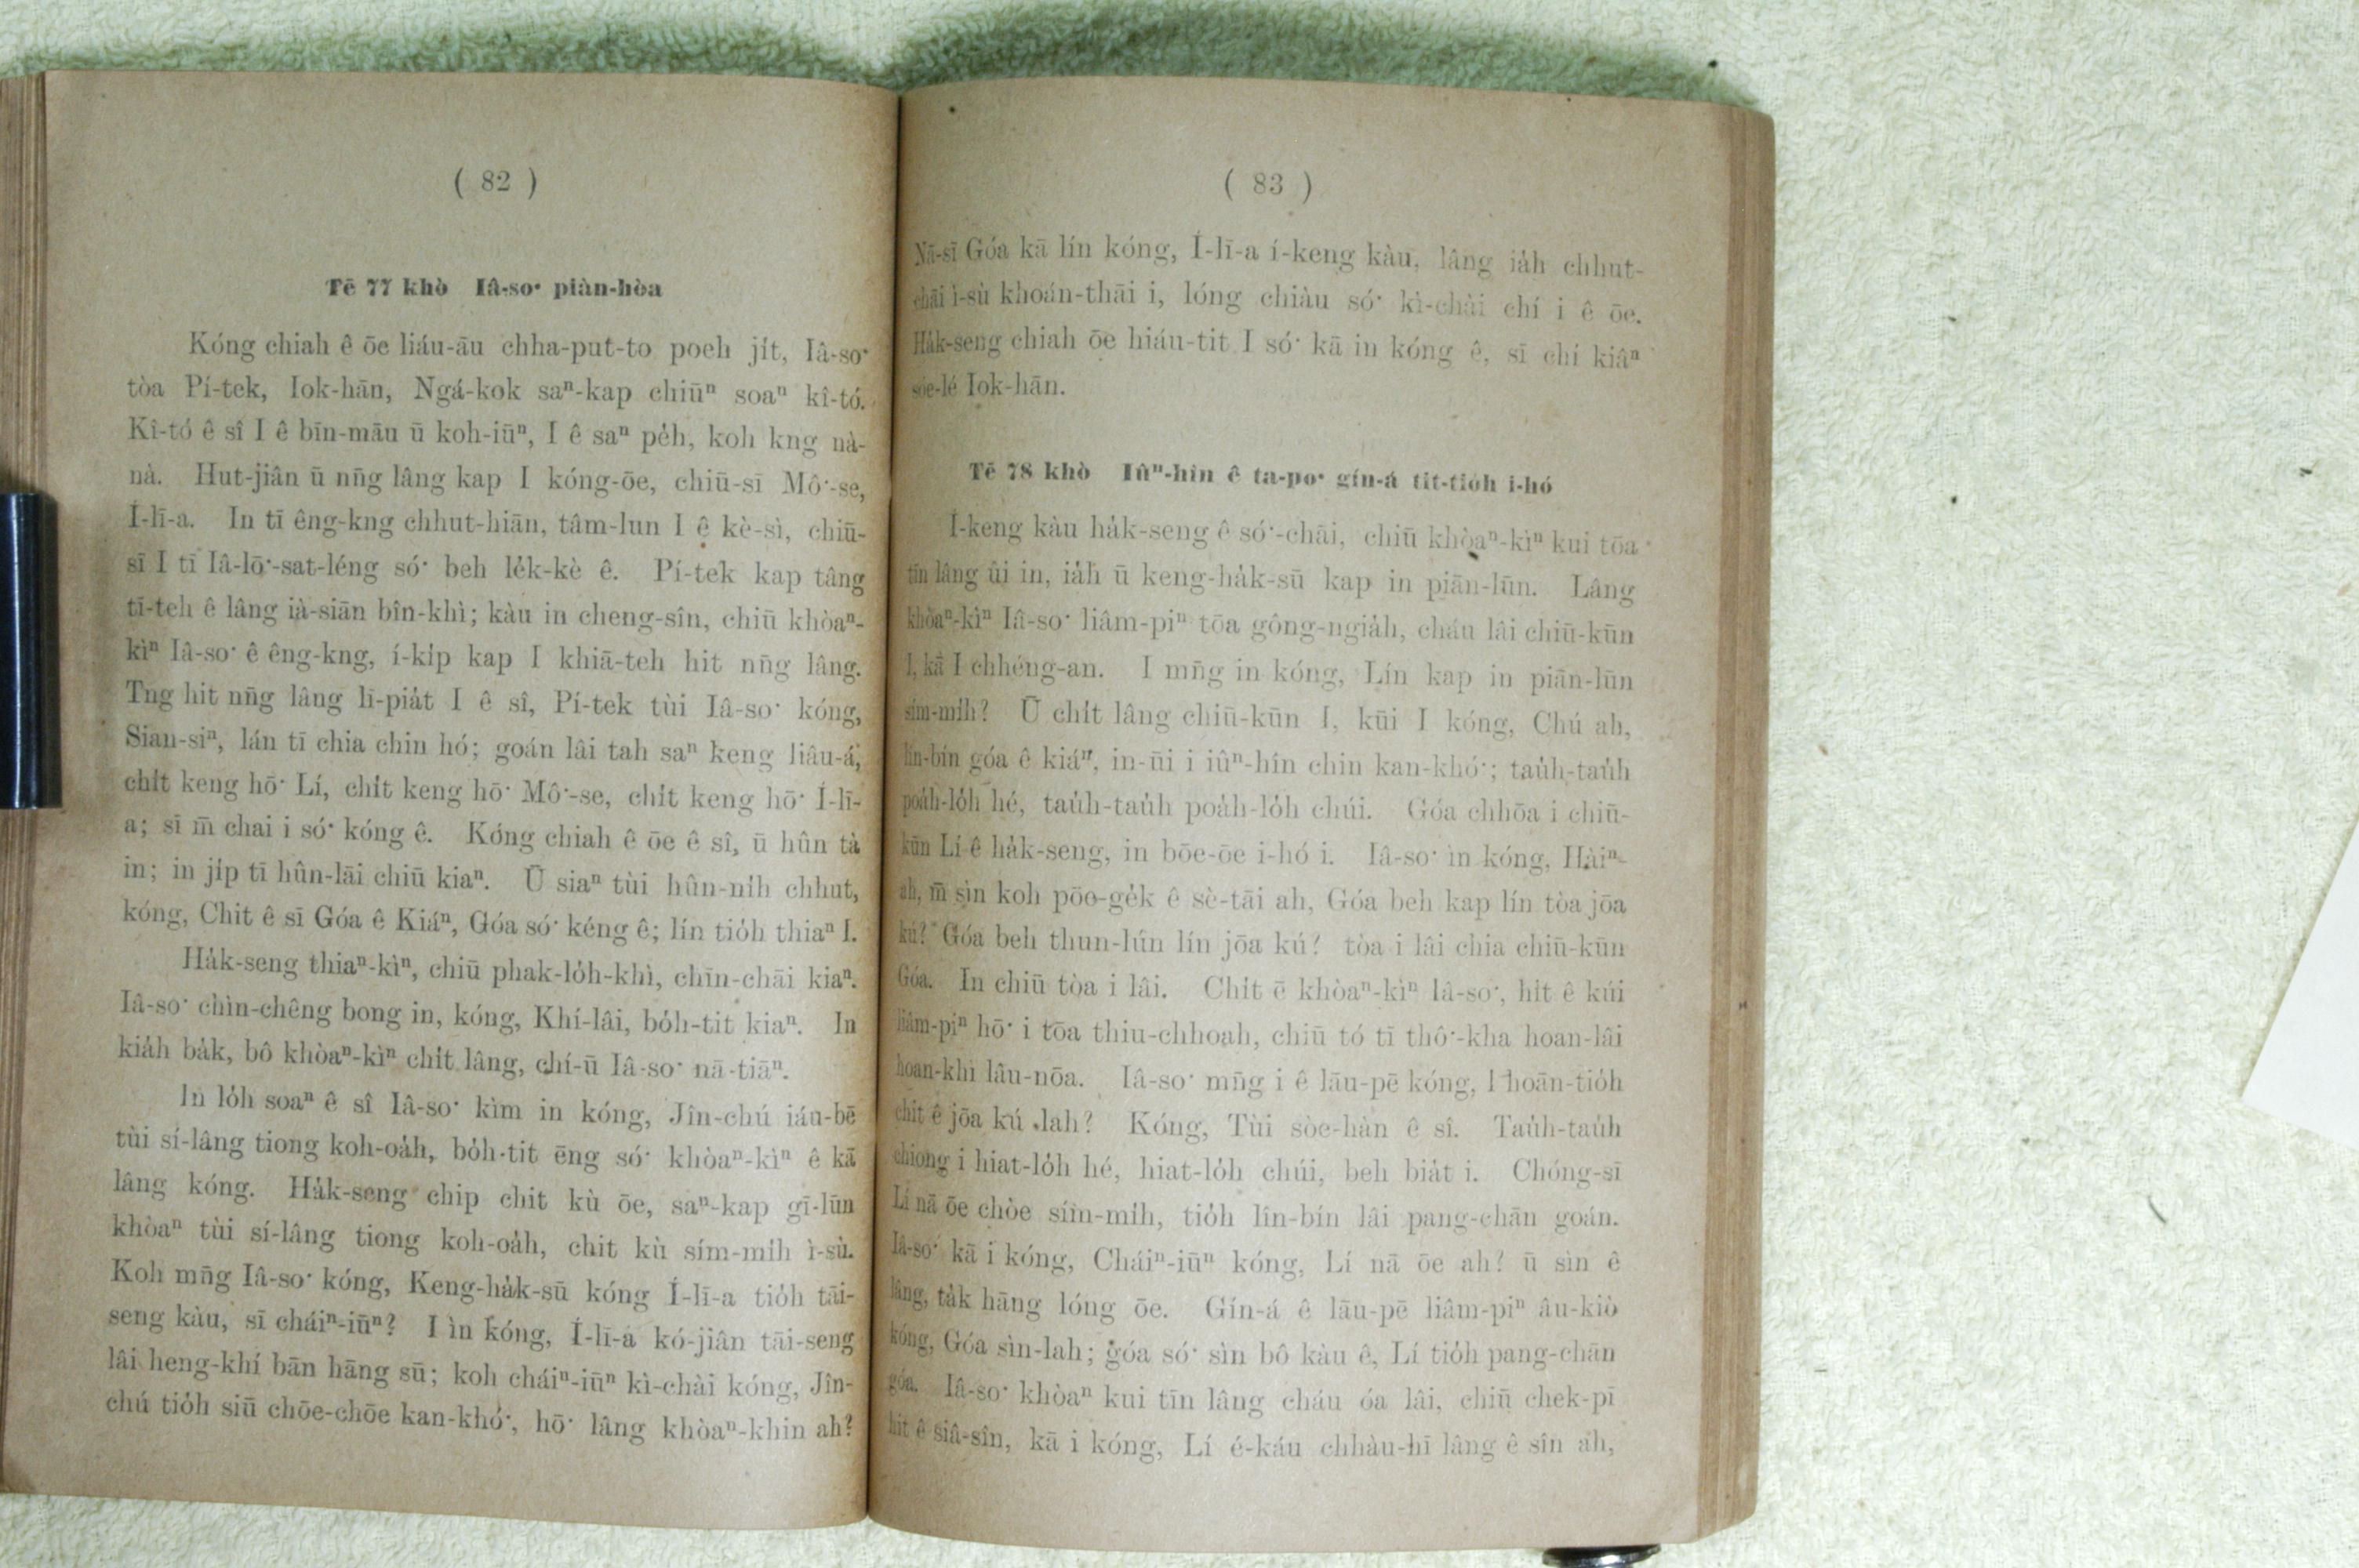 ( 82 )
Tē 77 khò Iâ-so͘ piàn-hòa
Kóng chiah ê ōe liáu-āu chha-put-to poeh ji̍t, Iâ-so͘
tòa Pí-tek, Iok-hān, Ngá-kok saⁿ-kap chiūⁿ soaⁿ kî-tó.
Kî-tó ê sî I ê bīn-māu ū koh-iūⁿ, I ê saⁿ pe̍h, koh kng nà-
nà. Hut-jiân ū nn̄g lâng kap I kóng-ōe, chiū-sī Mô͘-se,
Í-lī-a. In tī êng-kng chhut-hiān, tâm-lun I ê kè-sì, chiū-
sī I tī Iâ-lō͘-sat-léng só͘ beh le̍k-kè ê. Pí-tek kap tâng
tī-teh ê lâng ià-siān bîn-khì; kàu in cheng-sîn, chiū khòaⁿ-
kìⁿ Iâ-so͘ ê êng-kng, í-ki̍p kap I khiā-teh hit nn̄g lâng.
Tng hit nn̄g lâng lī-pia̍t I ê sî, Pí-tek tùi Iâ-so͘ kóng,
Sian-siⁿ, lán tī chia chin hó; goán lâi tah saⁿ keng liâu-á,
chi̍t keng hō͘ Lí, chi̍t keng hō͘ Mô͘-se, chi̍t keng hō͘ Í-lī-
a; sī m̄ chai i só͘ kóng ê. Kóng chiah ê ōe ê sî, ū hûn tà
in; in ji̍p tī hûn-lāi chiū kiaⁿ. Ū siaⁿ tùi hûn-ni̍h chhut,
kóng, Chit ê sī Góa ê Kiáⁿ, Góa só͘ kéng ê; lín tio̍h thiaⁿ I.
Ha̍k-seng thiaⁿ-kìⁿ, chiū phak-lo̍h-khì, chīn-chāi kiaⁿ.
Iâ-so͘ chìn-chêng bong in, kóng, Khí-lâi, bo̍h-tit kiaⁿ. In
kia̍h ba̍k, bô khòaⁿ-kìⁿ chi̍t lâng, chí-ū Iâ-so͘ nā-tiāⁿ.
In lo̍h soaⁿ ê sî Iâ-so͘ kìm in kóng, Jîn-chú iáu-bē
tùi sí-lâng tiong koh-oa̍h, bo̍h-tit ēng só͘ khòaⁿ-kìⁿ ê kā
lâng kóng. Ha̍k-seng chip chit kù ōe, saⁿ-kap gī-lūn
khòaⁿ tùi sí-lâng tiong koh-oa̍h, chit kù sím-mi̍h ì-sù.
Koh mn̄g Iâ-so͘ kóng, Keng-ha̍k-sū kóng Í-lī-a tio̍h tāi-
seng kàu, sī cháiⁿ-iūⁿ? I ìn kóng, Í-lī-a kó-jiân tāi-seng
lâi heng-khí bān hāng sū; koh cháiⁿ-iūⁿ kì-chài kóng, Jîn-
chú tio̍h siū chōe-chōe kan-khó͘, hō͘ lâng khòaⁿ-khin ah?
( 83 )
Nā-sī Góa kā lín kóng, Í-lī-a í-keng kàu, lâng ia̍h chhut-
chāi ì-sù khoán-thāi i, lóng chiàu só͘ kì-chài chí i ê ōe.
Ha̍k-seng chiah ōe hiáu-tit I só͘ kā in kóng ê, sī chí kiâⁿ
sóe-lé Iok-hān.
Tē 78 khò Iûⁿ-hîn ê ta-po͘ gín-á tit-tio̍h i-hó
Í-keng kàu ha̍k-seng ê só͘-chāi, chiū khòaⁿ-kìⁿ kui tōa
tīn lâng ûi in, ia̍h ū keng-ha̍k-sū kap in piān-lūn. Lâng
khòaⁿ-kìⁿ Iâ-so͘ liâm-piⁿ tōa gông-ngia̍h, cháu lâi chiū-kūn
I, kā I chhéng-an. I mn̄g in kóng, Lín kap in piān-lūn
sím-mi̍h? Ū chi̍t lâng chiū-kūn I, kūi I kóng, Chú ah,
lîn-bín góa ê kiáⁿ, in-ūi i iûⁿ-hîn chin kan-khó͘; tau̍h-tau̍h
poa̍h-lo̍h hé, tau̍h-tau̍h poa̍h-lo̍h chúi. Góa chhōa i chiū-
kūn Lí ê ha̍k-seng, in bōe-ōe i-hó i. Iâ-so͘ ìn kóng, Hàiⁿ-
ah, m̄ sìn koh pōo-ge̍k ê sè-tāi ah, Góa beh kap lín tòa jōa
kú? Góa beh thun-lún lín jōa kú? tòa i lâi chia chiū-kūn
Góa. In chiū tòa i lâi. Chi̍t ē khòaⁿ-kìⁿ Iâ-so͘, hit ê kúi
liâm-piⁿ hō͘ i tōa thiu-chhoah, chiū tó tī thô͘-kha hoan-lâi
hoan-khì lâu-nōa. Iâ-so͘ mn̄g i ê lāu-pē kóng, I hoān-tio̍h
chit ê jōa kú lah? Kóng, Tùi sòe-hàn ê sî. Tau̍h-tau̍h
chiong i hiat-lo̍h hé, hiat-lo̍h chúi, beh bia̍t i. Chóng-sī
Lí nā ōe chòe sím-mi̍h, tio̍h lîn-bín lâi pang-chān goán.
Iâ-so͘ kā i kóng, Cháiⁿ-iūⁿ kóng, Lí nā ōe ah? ū sìn ê
lâng, ta̍k hāng lóng ōe. Gín-á ê lāu-pē liâm-piⁿ âu-kiò
kóng, Góa sìn-lah; góa só͘ sìn bô kàu ê, Lí tio̍h pang-chān
góa. Iâ-so͘ khòaⁿ kui tīn lâng cháu óa lâi, chiū chek-pī
hit ê siâ-sîn, kā i kóng, Lí é-káu chhàu-hī lâng ê sîn ah,